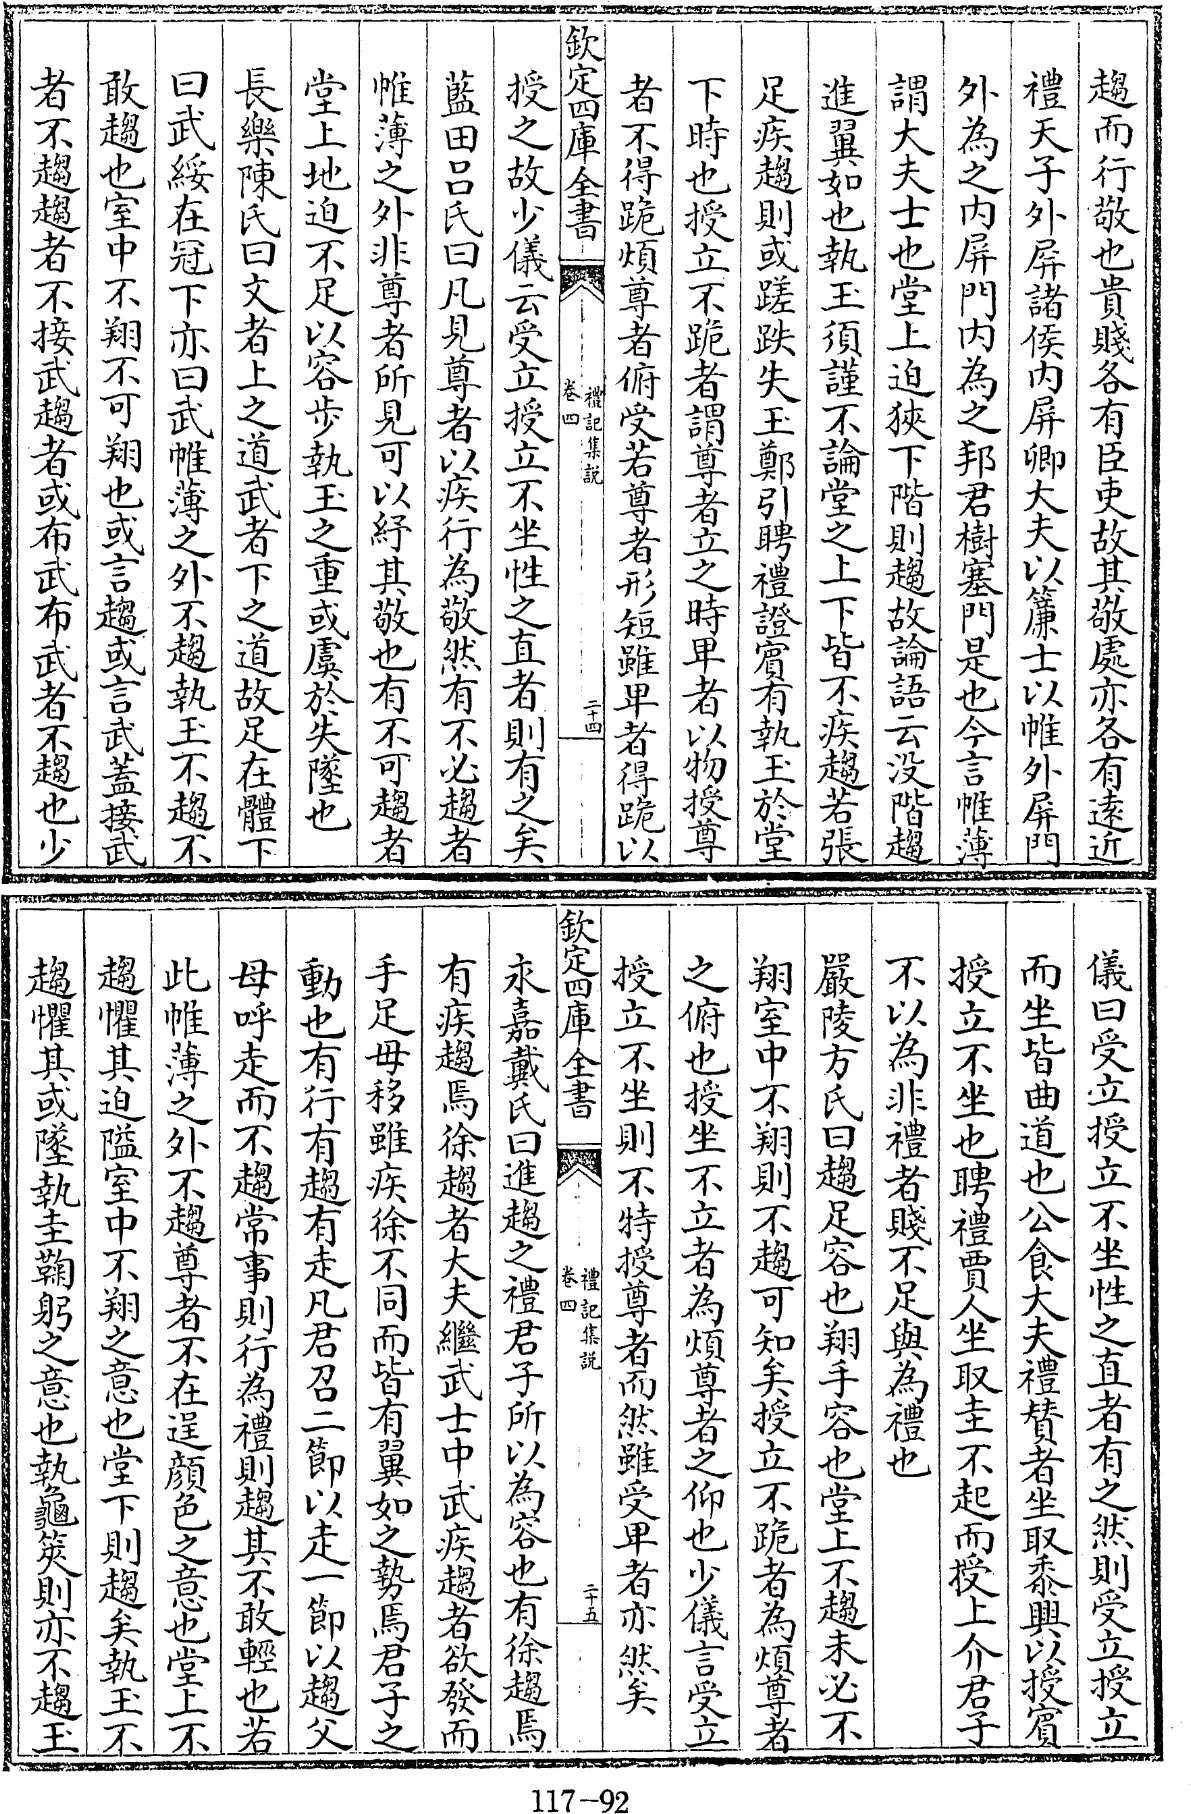 趨而行敬也貴賤各有臣吏故其敬處亦各有遠近
禮天子外屏諸侯内屏卿大夫以簾士以帷外屏門
外為之内屏門内為之邦君樹塞門是也今言帷薄
謂大夫士也堂上迫狹下階則趨故論語云没階趨
進翼如也執玉須謹不論堂之上下皆不疾趨若張
足疾趨則或蹉跌失玉鄭引聘禮證賓有執玉於堂
下時也授立不跪者謂尊者立之時卑者以物授尊
者不得跪煩尊者俯受若尊者形短雖卑者得跪以
欽定四庫全書
禮記集説
卷四
二十四
授之故少儀云受立授立不坐性之直者則有之矣
藍田吕氏曰凡見尊者以疾行為敬然有不必趨者
帷薄之外非尊者所見可以紓其敬也有不可趨者
堂上地迫不足以容步執玉之重或虞於失墜也
長樂陳氏曰文者上之道武者下之道故足在體下
曰武綏在冠下亦曰武帷薄之外不趨執玉不趨不
敢趨也室中不翔不可翔也或言趨或言武葢接武
者不趨趨者不接武趨者或布武布武者不趨也少
儀曰受立授立不坐性之直者有之然則受立授立
而坐皆曲道也公食大夫禮賛者坐取黍興以授賓
授立不坐也聘禮賈人坐取圭不起而授上介君子
不以為非禮者賤不足與為禮也
嚴陵方氏曰趨足容也翔手容也堂上不趨未必不
翔室中不翔則不趨可知矣授立不跪者為煩尊者
之俯也授坐不立者為煩尊者之仰也少儀言受立
授立不坐則不特授尊者而然雖受卑者亦然矣
欽定四庫全書
禮記集説
卷四
二十五
永嘉戴氏曰進趨之禮君子所以為容也有徐趨焉
有疾趨焉徐趨者大夫繼武士中武疾趨者欲發而
手足毋移雖疾徐不同而皆有翼如之勢焉君子之
動也有行有趨有走凡君召二節以走一節以趨父
母呼走而不趨常事則行為禮則趨其不敢輕也若
此帷薄之外不趨尊者不在逞顔色之意也堂上不
趨懼其迫隘室中不翔之意也堂下則趨矣執玉不
趨懼其或墜執圭鞠躬之意也執龜筴則亦不趨玉
117-92